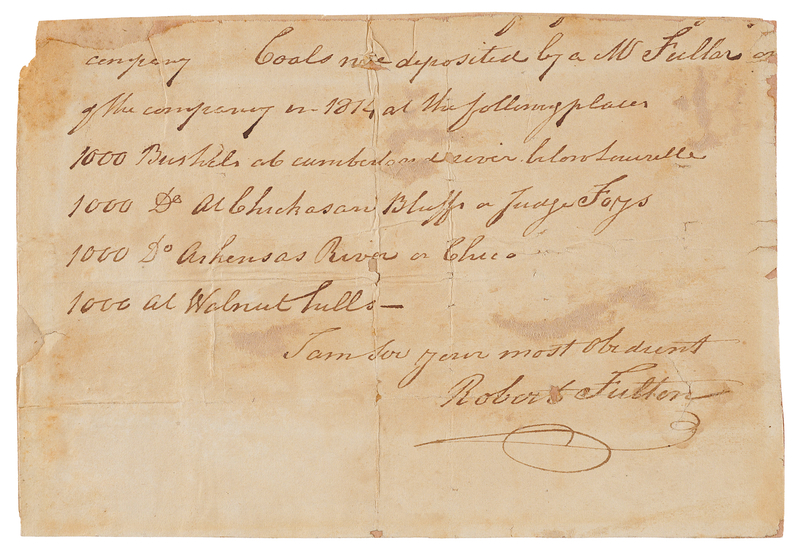 company Coals were deposited by a Mr Fullar on
of the company in 1814 at the following places
1000 Bushels at cumberland river below
1000 Do At Chickasaw Bluffs or Judge Foys
1000 Do Arkensas River or Chico
1000 at Walnut hills—
I am Sir your most Obedient
Robert Fulton